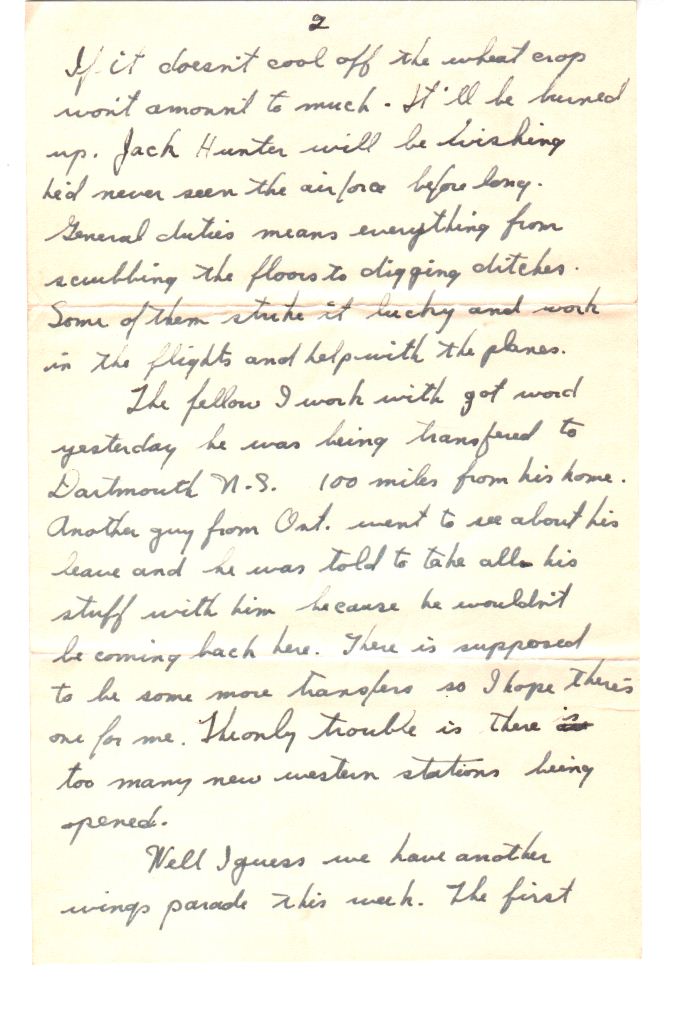 2
If it doesn't cool off the wheat crop
won't amount to much. It'll be burned
up. Jack Hunter will be wishing
he'd never seen the airforce before long.
General duties means everything from
scrubbing the floors to digging ditches.
Some of them strike it lucky and work
in the flights and help with the planes.
The fellow I work with got word
yesterday he was being transfered to
Dartmouth N.S. 100 miles from his home.
Another guy from Ont. went to see about his
leave and he was told to take all his
stuff with him because he wouldn't
be coming back here. There is supposed
to be some more transfers so I hope there's
one for me. The only trouble is there is
too many new western stations being
opened.
Well I guess we have another
wings parade this week. The first